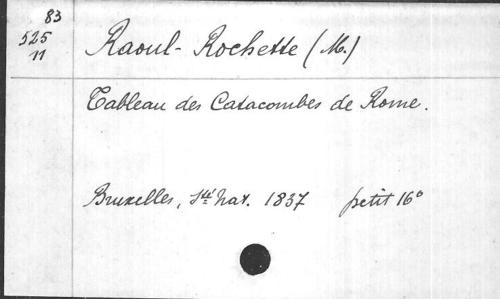 83
525
11
Raoul-Rochette (M.)
Tableau des Catacombes de Rome.
Bruxelles, Sté Nat. 1837 petit 16°